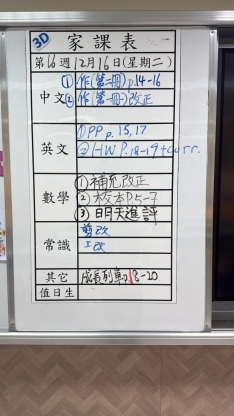 3D
家課表
第16週12月16日(星期二)
中文
①作(第二冊)p.14-16
②作(第一冊)改正
英文
①PP p.15,17
②HW P.18-19+corr.
數學
①補充改正
②校本P.5-7
③明天進評
常識
剪改
工改
其它
成長列車p.18-20
值日生